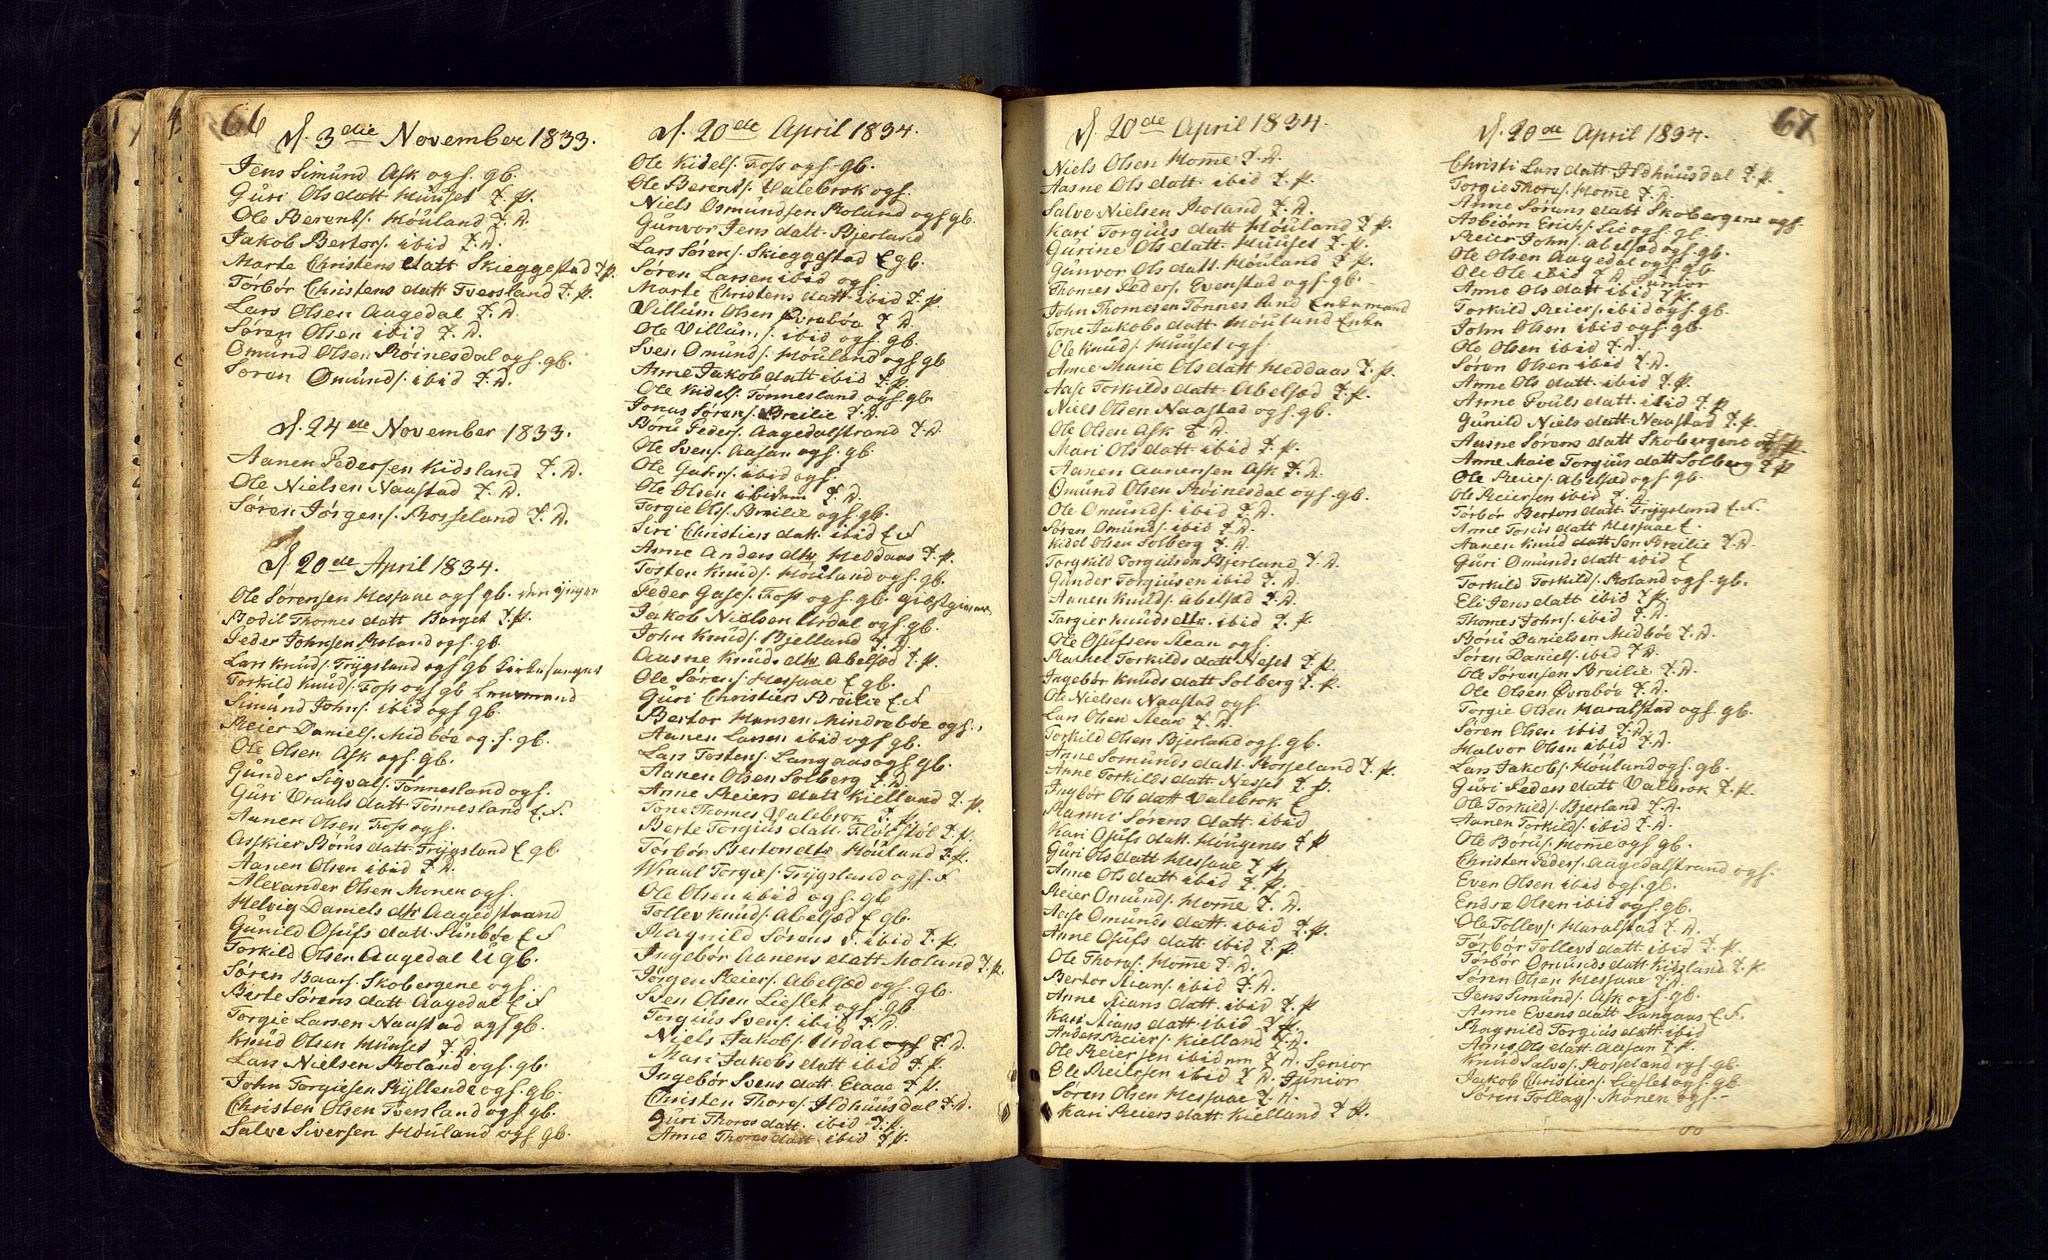 66
d. 3die November 1833.
Jens Simund Ask og f. gb.
Guri Ols datt Huuset T. P.
Ole Berents. Høuland T. D.
Jakob Bertors. ibid T. D.
Marte Christens datt Skieggestad T. P.
Torbør Christens datt Tversland T. P.
Lars Olsen Aagedal T. D.
Søren Olsen ibid T. D.
Omund Olsen Røinesdal og f. gb.
Søren Omunds. ibid T. D.
d. 24de November 1833.
Aanen Pedersen Kidsland T. D.
Ole Nielsen Naastad T. D.
Søren Jørgens. Rosseland T. D.
d. 20de April 1834.
Ole Sørensen Messaae og f. gb. den yngre
Bodil Thomes datt Barget T. P.
Peder Johnsen Roland og f. gb.
Lars Knuds. Trygsland og f gb kirkesanger
Torkild Knuds. Foss og f gb Lensmand
Simund Johns. ibid og f gb.
Reier Daniels. Midbøe og. f. gb.
Ole Olsen Ask og f. gb.
Gunder Sigvals. Tønnesland og f.
Guri Vraals datt Tønnesland E. F.
Aanen Olsen Foss og f.
Asskier Børus datt Trygsland E gb.
Aanen Olsen ibid T. D.
Alexander Olsen Monen og f.
Helvig Daniels dtr Aagedstrand
Gunild Osufs datt Sunbøe E F
Torkild Olsen Aagedal U gb.
Søren Baars. Skobergene og f.
Berte Sørens datt Aagedal E F
Torgie Larsen Naastad og f gb.
Knud Olsen Huuset T. D.
Lars Nielsen Roland og f. gb.
John Torgiesen Ryllende og f. gb.
Christen Olsen Tversland og f gb.
Salve Siversen Høuland og f gb.
d. 20de April 1834.
Ole Kidels. Foss og f. gb.
Ole Berents. Valebrok og f.
Niels Osmundsen Roland og f gb.
Gunvor Jens datt Bjerland
Lars Sørens. Skieggestad E gb.
Søren Larsen ibid og f.
Marte Christens datt ibid T. P
Villum Olsen Øvrebøe T. D.
Ole Villums. ibid og f. gb.
Sven Omunds. Høuland og f gb
Anne Jakob datt ibid T. P.
Ole Kidels. Tønnesland og f gb.
Jonas Sørens. Breilie T. D.
Børu Peders. Aagedalstrand T. D.
Ole Svens. Aasan og f. gb.
Ole ibid og f.
Ole Olsen ibidem T. D.
Torgie Ols. Breilie og f. gb.
Siri Christiens datt. ibid E F
Anne Anders dtr Heddaas T. P.
Tosten Knuds. Høuland og f. gb.
Peder Foss og f. gb. giæstgiver
Jakob Nielsen Urdal og f. gb.
John Knuds. Bjelland T. D.
Aasne Knuds dtr Abelsæd T. P.
Ole Sørens. Messaae E gb.
Guri Christiens Breilie E. F
Bertor Hansen Mindrebøe og f.,
Aanen Larsen ibid og f gb.
Lars Tostens. Langaas og f gb.
Aanen Olsen Solberg T. D.
Anne Reiers datt Kielland T. P.
Tone Thomes Valebrok T. P.
Berte Torgius datt T. P.
Torbør Bertors dtr Høuland T. P.
Wraal Torgies. Trygsland og f. F
Ole Olsen ibid og f. gb
Tollev Knuds. Abelsæd E gb.
Ragnild Sørens d. ibid T. P.
Ingebør Aanens datt Moland T. P.
Jørgen Reiers. Abelsæd og f. gb.
Sven Olsen Lieslet og f. gb.
Torgius Svens. ibid T. D
Niels Jakobs. Urdal og f T. D.
Mari Jakobs datt ibid T. P.
Ingebør Svens datt Eiaae T. P.
Christen Thors. Ildhuusdal T. D.
Guri Thoros datt. ibid T. P.
Anne Thoros datt ibid T. P.
d. 20de April 1834.
Niels Olsen Home T. D.
Aasne Ols datt ibid T. P.
Salve Nielsen Roland T. D.
Kari Torgius datt Høuland T. P.
Gurine Ols datt Huuset T. P.
Gunvor Ols datt Høuland T. P.
Thomes Peders. Evenstad og f. gb.
John Thomesen Tønnesland Enkemand
Tone Jakobs datt Høuland Enke
Ole Knuds. Huuset og f
Anne Marie Ols datt Heddaas T. P.
Aase Torkilds datt Abelsæd T. P.
Niels Olsen Naastad og f. gb.
Ole Olsen Ask T. D.
Mari Ols datt ibid T. P.
Aanen Aanensen Ask T. D.
Omund Olsen Røinesdal og f. gb.
Ole Omunds. ibid T. D.
Søren Omunds. ibid T. D.
Kidel Olsen Solberg T. D.
Torgkild Torgiusen Bjerland T. D.
Gunder Torgiusen ibid T. D.
Aanen Knuds. Abelsæd T. D.
Torgier Knuds dtr. ibid T. P.
Ole Osufsen Rean og f.
Rannei Torkilds datt Neset T. P.
Ingebør Knuds datt Solberg T. P.
Ole Nielsen Naastad og f.
Lars Olsen Rean T. D.
Torkild Olsen Bjerland og f. gb.
Anne Somunds datt. Rosseland T. P.
Anne Torkilds datt Nesset T. P.
Ingebør Ols datt Valebrok E
Ranni Sørens datt ibid
Kari Osufs datt. Høugenes T P
Guri Ols datt Messaae T. P.
Anne Ols datt ibid T. P.
Reier Omunds. Home T. D.
Aase Omunds datt ibid T. P.
Anne Osufs datt ibid T. P.
Ole Thors. Home T. D.
Bertor Stians. ibid T. D.
Anne Stians datt. ibid T. P
Kari Stians datt ibid T. P.
Anders Reiers. Kielland T. D.
Ole Reiersen ibidem T. D. Senior
Ole Reiersen ibid T D. Junior
Søren Olsen Messaae T. D.
Kari Reiers datt Kielland T. P.
67
d. 20de April 1834.
Christi Lars datt Ildhuusdal T. P.
Torgie Thors. Home T. D.
Anne Sørens datt Skobergene og f.
Asbiørn Erichs. Lie og f. gb.
Reier Johns. Abelsæd og f. gb.
Ole Olsen Aagedal og f. gb.
Ole Ole ibid T. D. Junior
Anne Ols datt ibid T. P.
Torkild Reiers. ibid og f. gb.
John Olsen ibid og f. gb.
Ole Olsen ibid T. D.
Søren Olsen ibid T. D.
Anne Ols datt. ibid T. P.
Anne Pouls datt. ibid T. P
Gunild Niels datt Naastad T. P.
Aasne Sørens datt Skobergene T. P
Anne Maie Torgius datt Solberg T P
Ole Reiers. Abelsæd og f. gb.
Ole Reiersen ibid T. D.
Torbør Bertors datt Trygsland E. F.
Anne Tosus datt Messaae E.
Aanen Knud Breilie T. D.
Guri Omunds datt ibid E
Torkild Torkilds. Roland og f. gb.
Eli Jens datt ibid T. P.
Thomes Johns. ibid T. D.
Børu Danielsen Midbøe T. D.
Søren Daniels. ibid T. D.
Ole Sørensen Breilie T. D.
Ole Olsen Øvrebøe T. D.
Torgie Olsen Haralstad og f. gb.
Søren Olsen ibid T. D.
Halvor Olsen ibid T. D.
Lars Jakobs. Høuland og f. gb.
Guri Peders datt Valbrok T. P.
Ole Torkilds. Bjerland T. D.
Aanen Torkilds. ibid T. D.
Ole Børus. Home og f gb.
Christen Peders. Aagedalstrand og f.
Even Olsen ibid og f. gb.
Endre Olsen ibid og f. gb.
Ole Tollevs. Haralstad T. D.
Torbør Tollevs datt ibid T. P.
Torbør Omunds datt Kidsland T. P
Søren Olsen Messaae T. D.
Jens Simunds. Ask og f. gb.
Anne Evens datt Langaas E F.
Ragnild Torgius datt ibid
Anne Ols datt Aasan T. P.
Knud Salves. Rosseland og f. gb.
Jakob Christiers. Lieslet og f. gb.
Søren Tollags. Monen og f.